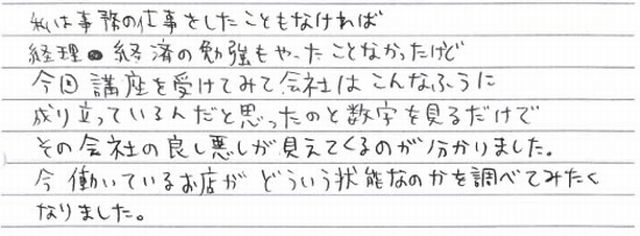 私は事務の仕事をしたこともなければ
経理 経済の勉強もやったことなかったけど
今回 講座を受けてみて会社はこんなふうに
成り立っているんだと思ったのと数字を見るだけで
その会社の良し悪しが見えてくるのが分かりました。
今 働いているお店が どういう状態なのかを調べてみたく
なりました。